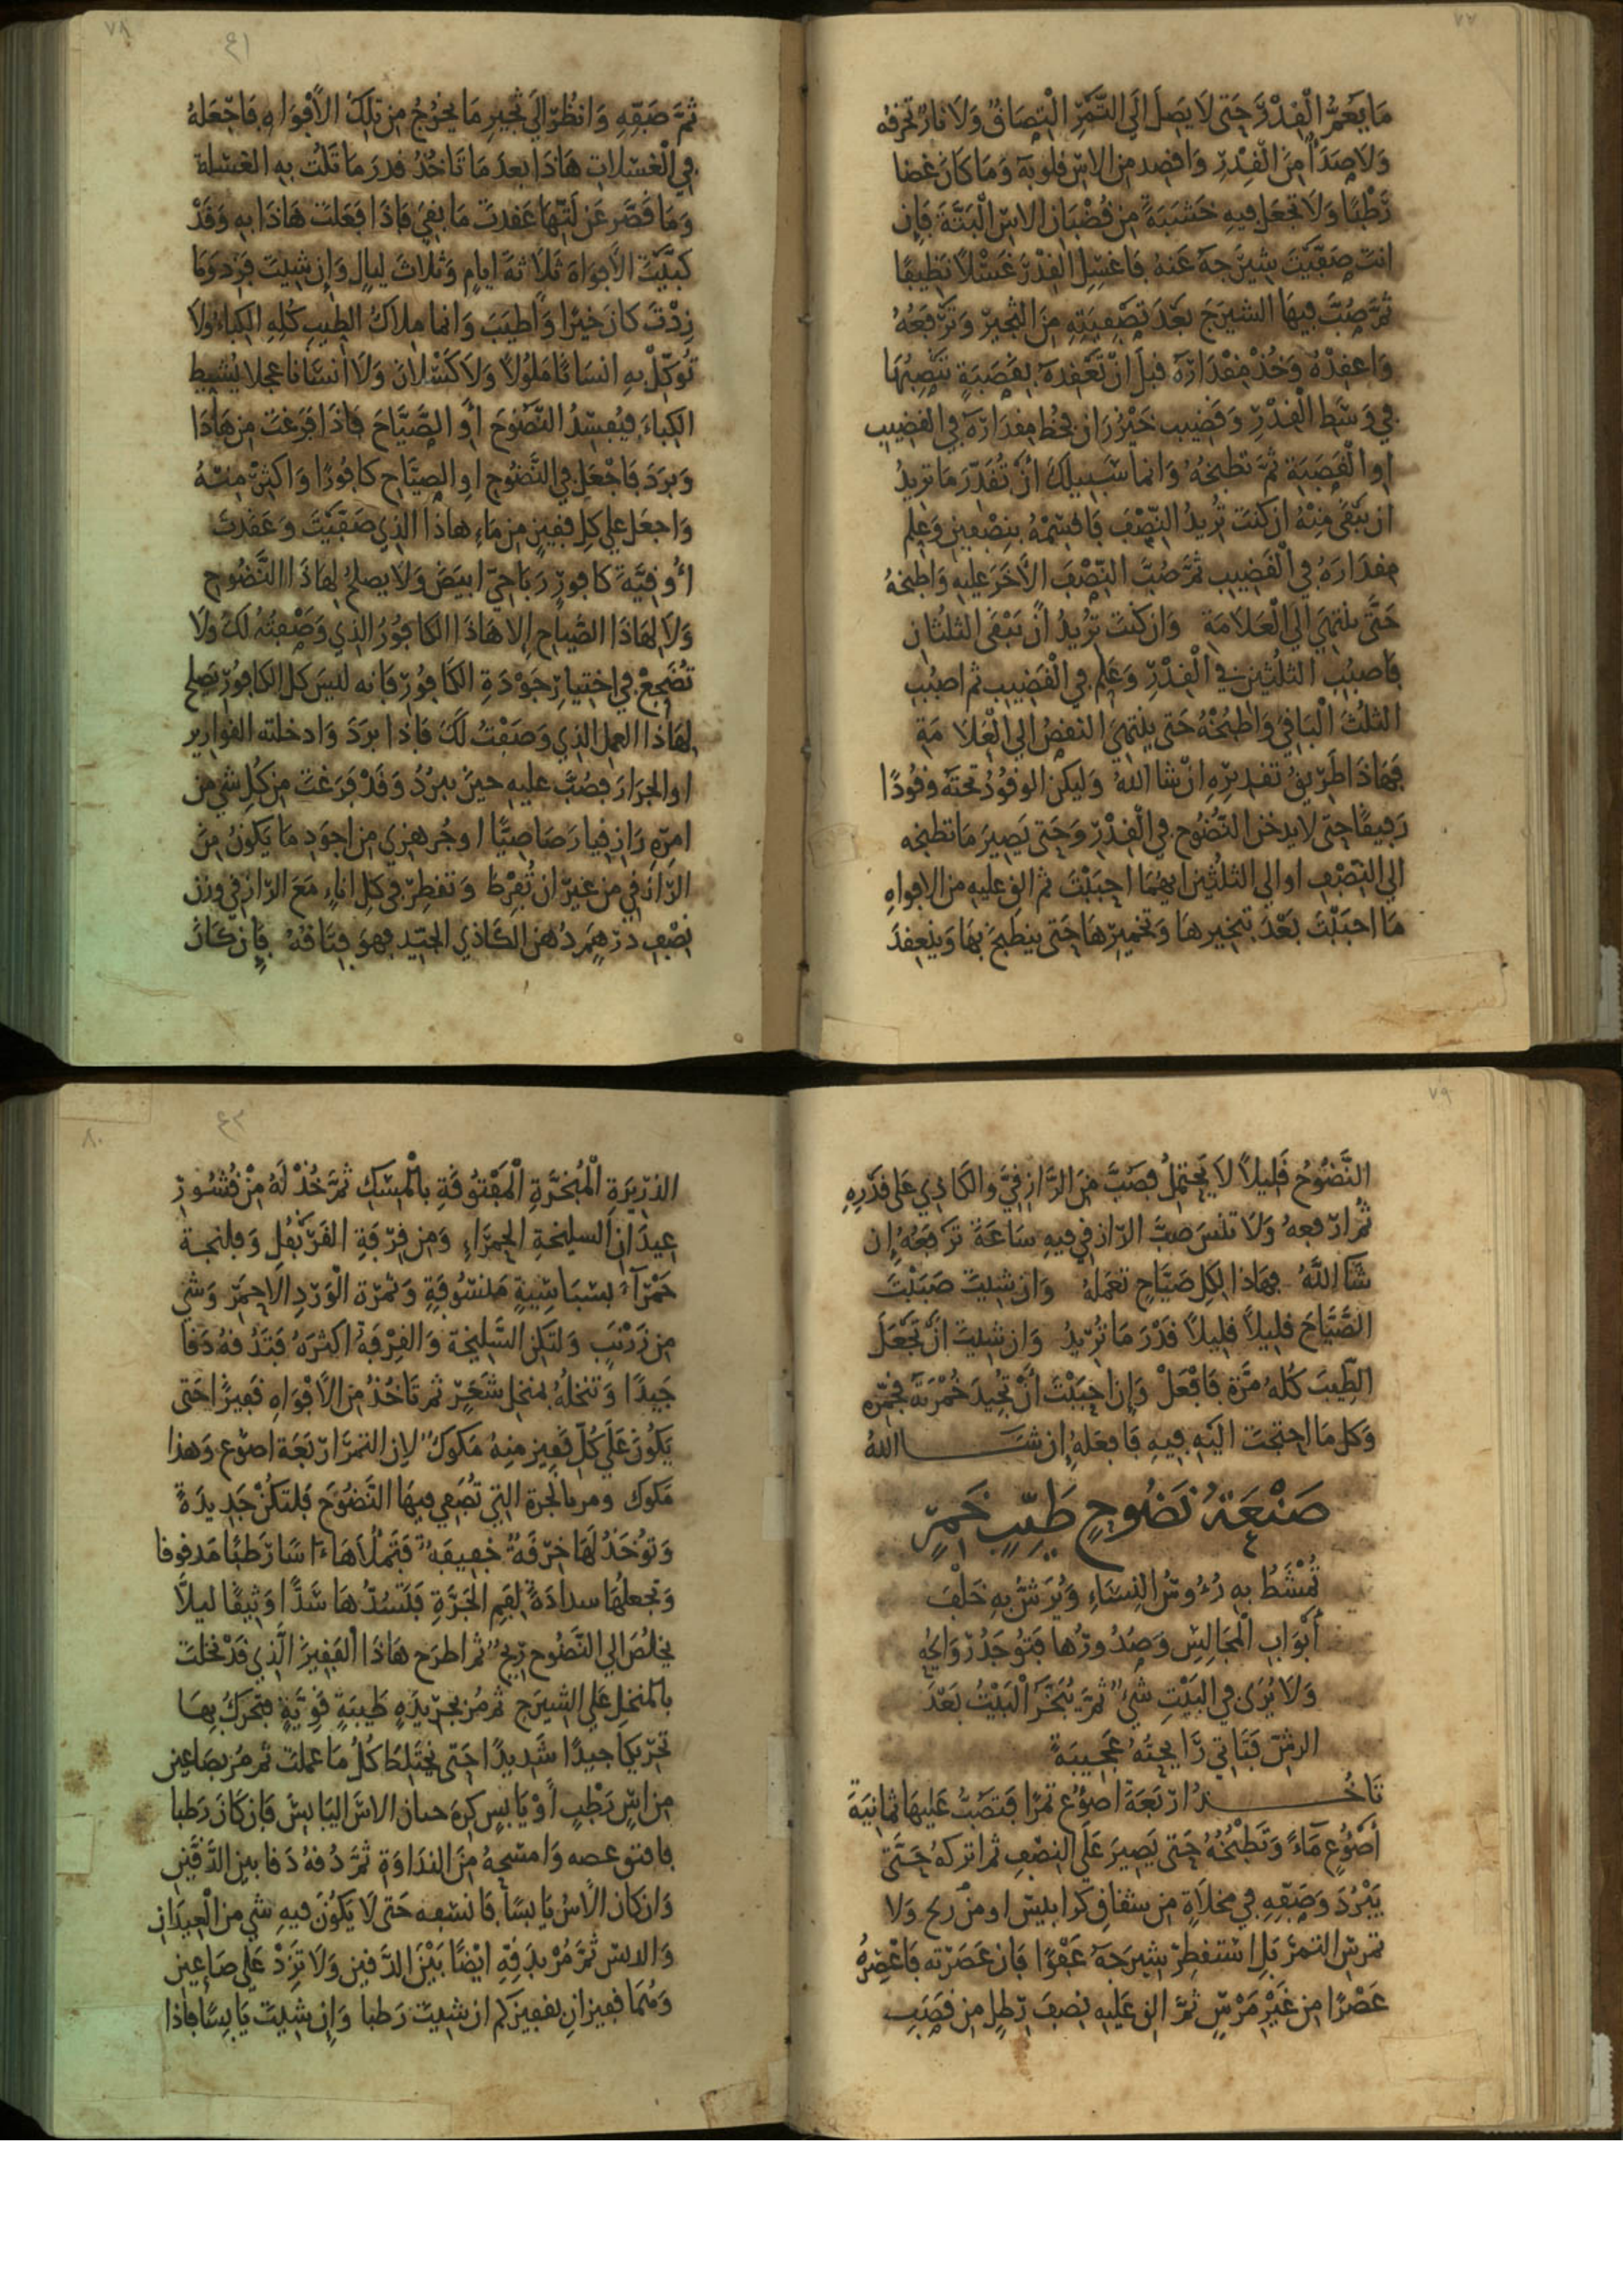 ٧٧
ما يغمر القدر حتى لا يصل الى التمر التصاق ولا نار تحرقه
ولا صدأ من القدر واقصد من الاس قلوبه وما كان غضا
رطبا ولا تجعل فيه خشبة من قضبان الاس البتة فان
انت صفيت شيرجه عنه فاغسل القدر غسلا نظيفا
ثم صب فيها الشيرج بعد تصفيته من الثجير وترفعه
واعقده وخذ مقداره قبل ان تعقده بقصبة تنصبها
في وسط القدر وقضيب خيزران فخط مقداره في القضيب
او القصبة ثم تطبخه وانما سبيلك ان تقدر ما تريد
ان يبقى منه ان كنت تريد النصف فاقسمه بنصفين وعلم
مقداره في القضيب ثم صب النصف الاخر عليه واطبخه
حتى ينتهي الى العلامة وان كنت تريد ان يبقى الثلثان
فاصبب الثلثين في القدر وعلم في القضيب ثم اصبب
الثلث الباقي واطبخه حتى ينتهي النقص الى العلامة
فهاذا طريق تقديره ان شا الله وليكن الوقود تحته وقودا
رقيقا حتى لا يدخن النضوح في القدر وحتى يصير ما تطبخه
الى النصف او الى الثلثين ايهما احببت ثم الق عليه من الافواه
ما احببت بعد تبخيرها وتخميرها حتى ينطبخ بها وينعقد
٧٨
٤١
ثم صفه وانظر الى ثجير ما يخرج من تلك الافواه فاجعله
في الغسلات هاذا بعد ما تاخذ قدر ما تلت به الغسلة
وما قصر عن لتها عقدت ما بقي فاذا فعلت هاذا به وقد
كبيت الافواه ثلاثة ايام وثلاث ليال وان شيت فزد وما
زدت كان خيرا واطيب وانما ملاك الطيب كله الكباء ولا
توكل به انسانا ملولا ولا كسلان ولا انسانا عجلا يشيط
الكباء فيفسد النضوح او الصياح فاذا فرغت من هاذا
وبرد فاجعل في النضوح او الصياح كافورا واكثر منه
واجعل على كل قفيز من ماء هاذا الذي صفيت وعقدت
اوقية كافور رباحي ابيض ولا يصلح لهاذا النضوح
ولا لهاذا الصياح الا هاذا الكافور الذي وصفته لك ولا
تضجع في اختيار جودة الكافور فانه ليس كل الكافور يصلح
لهاذا العمل الذي وصفت لك فاذا برد وادخلته القوارير
او الجرار فصب عليه حين يبرد وقد فرغت من كل شي من
امره رازقيا رصاصيا او جرهزي من اجود ما يكون من
الرازقي من غير ان تفرط وتقطر في كل اناء مع الرازقي وزن
نصف درهم دهن الكاذي الجيد فهو فتاقه فان كان
٧٩
النضوح قليلا لا يحتمل فصب من الرازقي والكاذي على قدره
ثم ارفعه ولا تنس صب الرازقي فيه ساعة ترفعه ان
شا الله فهاذا لكل صياح تعمله وان شيت صببت
الصياح قليلا قليلا قدر ما تريد وان شيت ان تجعل
الطيب كله مرة فافعل وان احببت ان تجيد خمرته فخمره
وكل ما احتجت اليه فيه فافعله ان شا الله
صنعة نضوح طيب خمر
تمشط به رءوس النساء ويرش به خلف
أبواب المجالس وصدورها فتوجد روايحه
ولا يرى في البيت شي ثم يبخر البيت بعد
الرش فتاتي رايحته عجيبة
تاخذ اربعة اصوع تمرا فتصب عليها ثمانية
أصوع ماء وتطبخه حتى يصير على النصف ثم اتركه حتى
يبرد وصفه في مخلاة من سفاق كرابيس او من ريح ولا
تمرس التمر بل استقطر شيرجه عفوا فان عصرته فاعصره
عصرا من غير مرس ثم الق عليه نصف رطل من قصب
٨٠
٤٣
الذريرة المبخرة المفتوقة بالمسك ثم خذ له من قشور
عيدان السليخة الحمراء ومن قرفة القرنفل وفلنجة
حمراء بسباسية منسوفة وثمرة الورد الاحمر وشي
من زرنب ولتكن السليخة والقرفة اكثره فتدقه دقا
جيدا وتنخله بمنخل شعر ثم تاخذ من الافواه قفيزا حتى
يكون على كل قفيز منه مكوك لان التمر اربعة اصوع وهذا
مكوك ومر بالجرة التي تصفي فيها النضوح فلتكن جديدة
وتوخذ لها خرقة خفيفة فتملاها اسا رطبا مدقوقا
وتجعلها سدادة لفم الجرة فلتسدها سدا وثيقا ليلا
يخلص الى النضوح ريح ثم اطرح هاذا القفيز الذي قد نخلت
بالمنخل على الشيرج ثم مر بجريدة طيبة قوية فتحرك بها
تحريكا جيدا شديدا حتى يختلط كل ما عملت ثم مر بصاعين
من اس رطب او يابس كره حسان الاس اليابس فان كان رطبا
فانتو غصه وامسحه من النداوة ثم دقه دقا بين الدقين
وان كان الاس يابسا فانسفه حتى لا يكون فيه شي من العيدان
والدبس ثم مر بدقه ايضا بين الدقين ولا تزد على صاعين
وهما قفيزان بقفيزكم ان شيت رطبا وان شيت يابسا فاذا